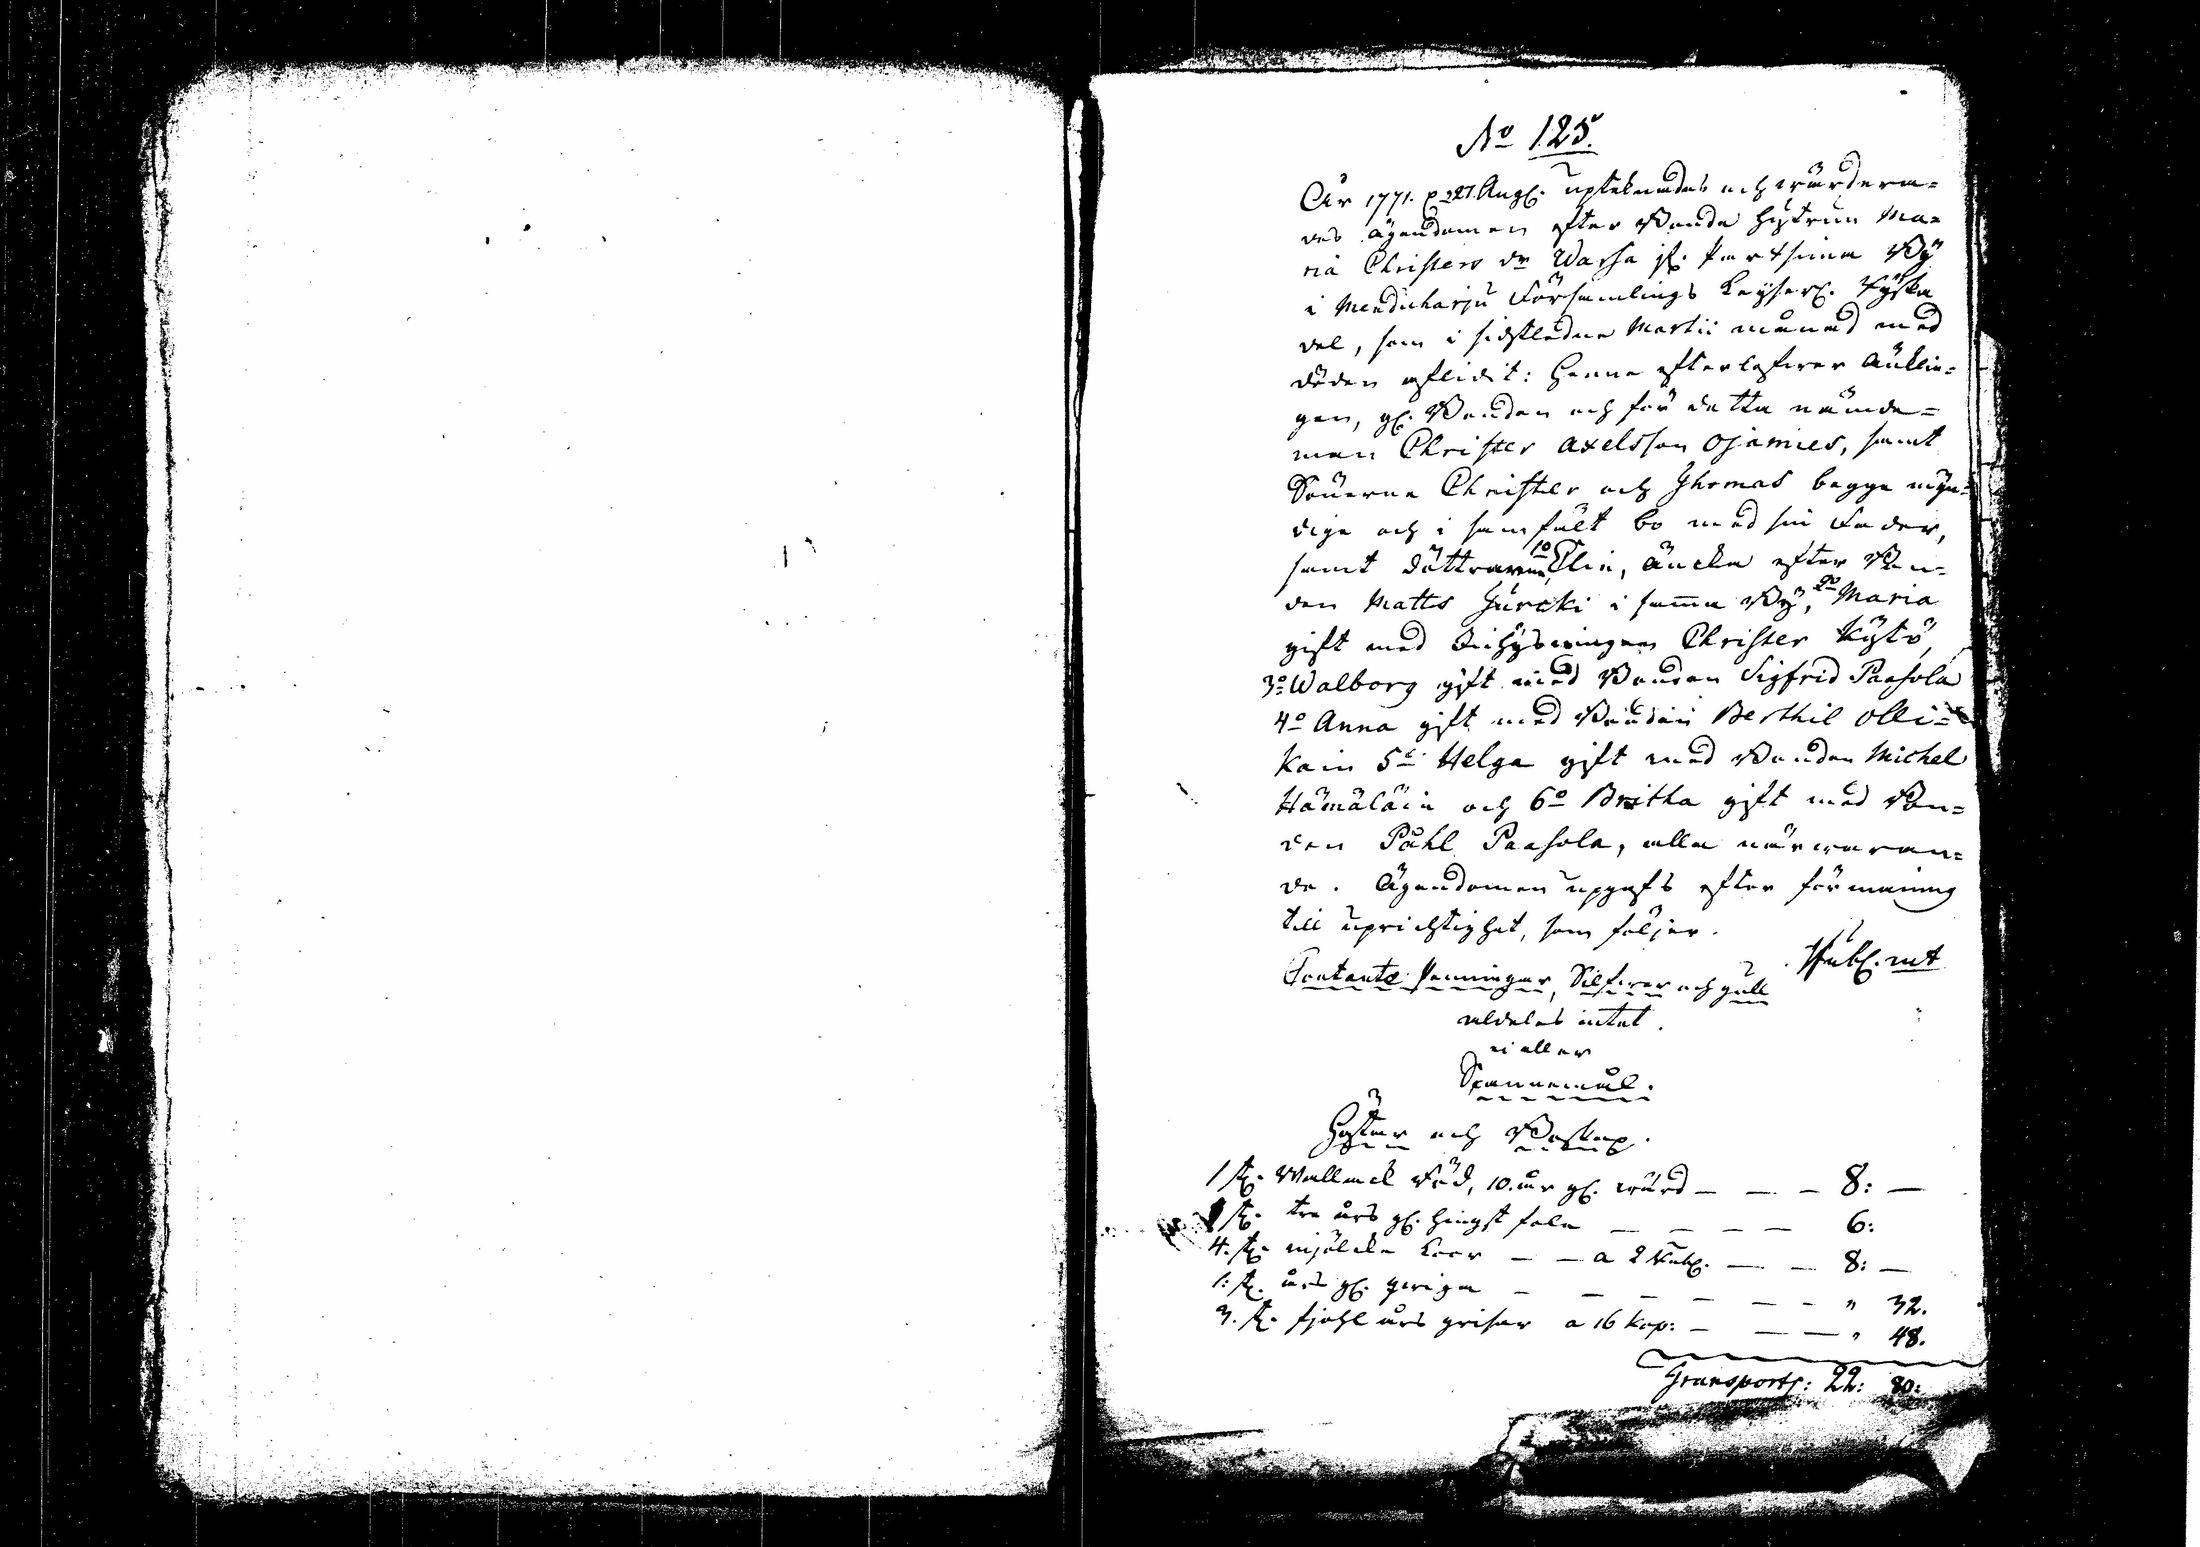 No 125.
Åhr 1771. d 27. Aug. upteknades och värdera-
des ägendomen efter Bonde Hustrun Ma-
ria Christers dr Warsa ifr. Parts Bÿ
i Mendūharju Församlings Keyserl. Tÿska
del, som i sidstledne Martii månad med
döden aflidit: Henne efterlefver Änklin-
gen, gl. Bonden och för detta nämde-
man Christer Axelsson Ojamies, samt
Sönerne Christer och Thomas begge mÿn-
dige och i samfält bo med sin Fader,
samt döttrarne 1o Elin, äncka efter Bon-
den Matts Hurcki i samma Bÿ, 2o Maria
gift med Inhÿsningen Christer Kÿtö,
3o Walborg gift med Bonden Sigfrid Paasola
4o Anna gift med Bonden Berthil Olli-
kain 5o Helga gift med Bonden Michel
Hämäläin och 6o Britha gift med Bon-
den Påhl Paasola, alla närvaran-
de. Ägendomen upgafs efter förmaning
till uprichtighet, som följer.
Rubl. mt
Contante Penningar, Silfwer och gull
aldeles intet.
ei eller
Spannemål.
Hästar och Boskap.
1 st. Wallack Röd, 10. år gl. wärd — — — 8: —
1 st. tre års gl. hingst fåla — — — — 6:
4. st. mjölcke Koor — — a 2 Rubl. — — 8: —
1: st. års gl. qwiga — — — — — — " 32.
3. st. fjohl års grisar a 16 kop: — — — " 48.
Transport: 22: 80: